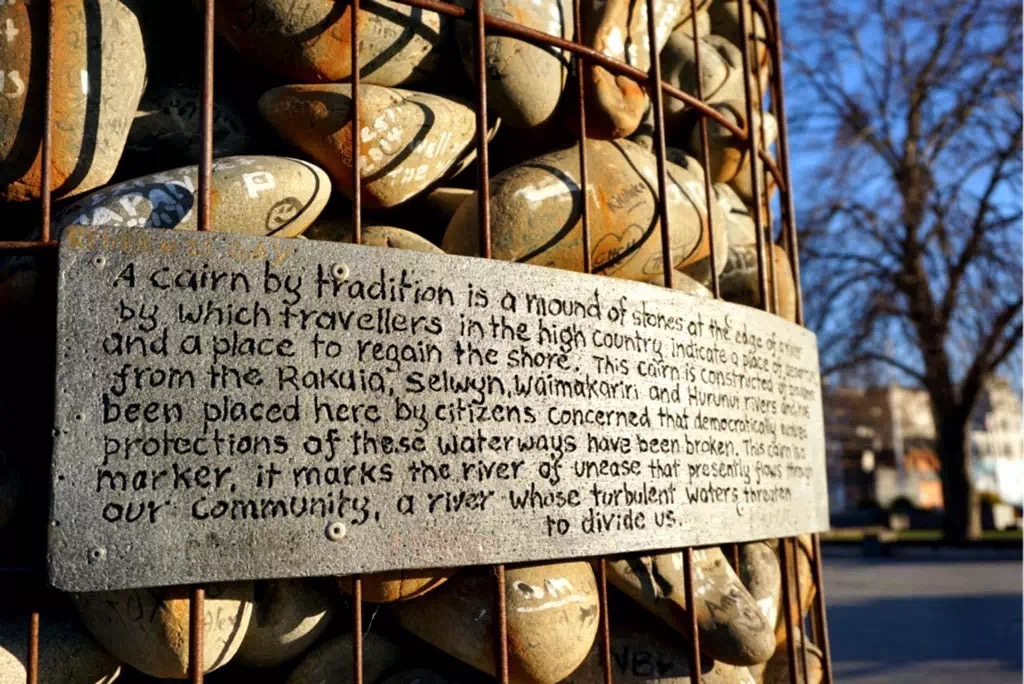 A cairn by tradition is a mound of stones at the edge of a river
by which travellers in the high country indicate a place of
and a place to regain the shore. This cairn is constructed of
from the Rakaia, Selwyn, Waimakariri and Hurunui rivers and has
been placed here by citizens concerned that democratically
protections of these waterways have been broken. This cairn is a
marker, it marks the river of unease that presently flows through
our community, a river whose turbulent waters threaten
to divide us.